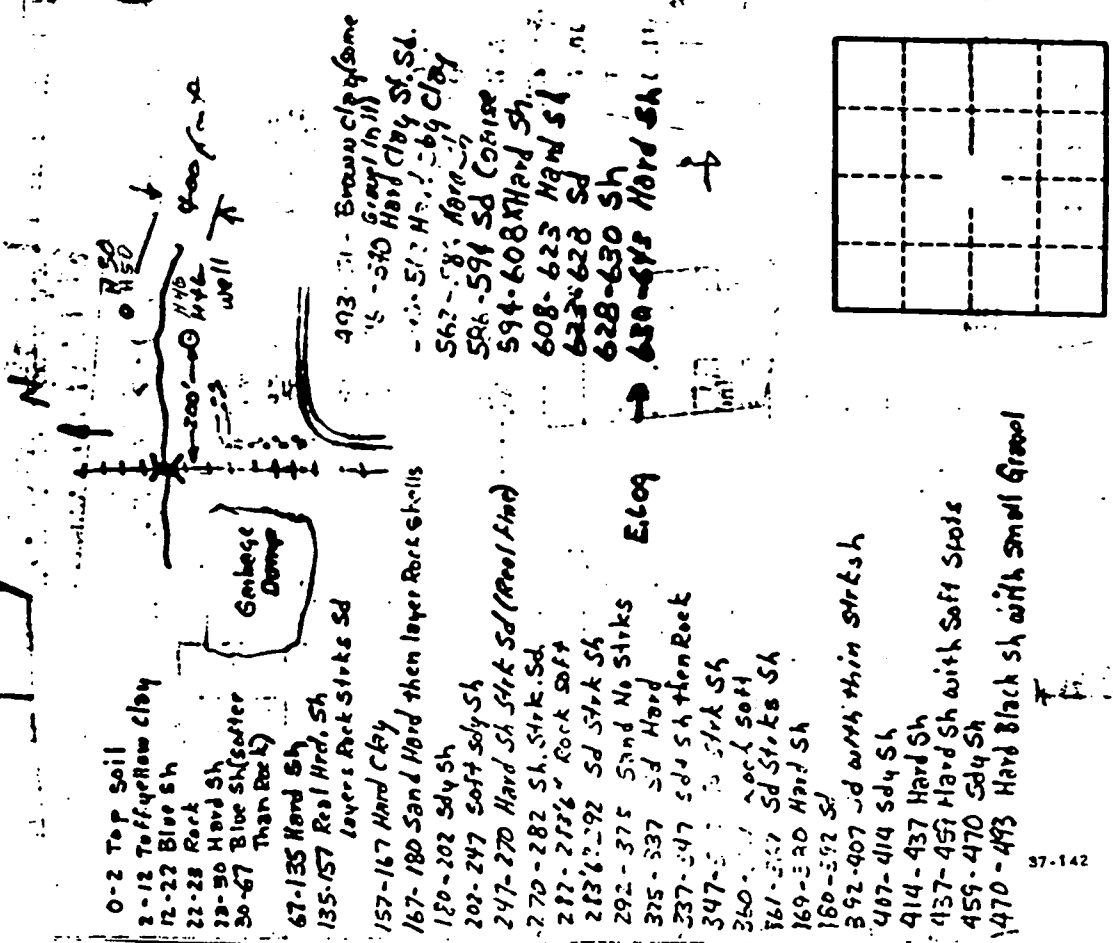 N
R 50
H50
400
H46
H46
well
200'
Garbage
Dump
0-2 Top Soil
2-12 Toffyellow Clay
12-22 Blue Sh
22-28 Rock
28-30 Hard Sh
30-67 Blue Sh (Softer
Than Rock)
67-135 Hard Sh
135-157 Real Hrd. Sh
Layers Rock Strks Sd
157-167 Hard Clay
167-180 Sand Hard then layer Rock shells
180-202 Sdy Sh
202-247 Soft Sdy Sh
247-270 Hard Sh Strk Sd (Real Fine)
270-282 Sh. Strk. Sd
Rock Soft
Sd Strk Sh
292-375 Sand No Strks
375-337 Sd Hard
337-347 Sdd Sh then Rock
347- Strk Sh
360- Rock Soft
361- Sd Strks Sh
Hard Sh
Sd
392-407 Sd with thin Strk sh
407-414 Sdy Sh
414-437 Hard Sh
437-459 Hard Sh with Soft Spots
459-470 Sdy Sh
470-493 Hard Black Sh with Small Gravel
493- Brown Clay (Some
Gravel in it)
Hard Clay St. Sd.
Clay
562- Hard
586-594 Sd Coarse
594-608 Hard Sh.
608-623 Hard Sd
623-628 Sd
628-630 Sh
630-648 Hard Sh
E.Log
37-142